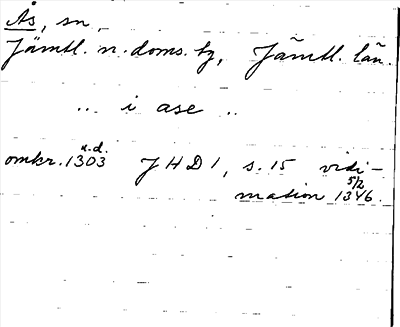 Ås, sn.
Jämtl. n. doms. tg, Jämtl. län.
... i ase ..
omkr. 1303 u.d. JHD 1, s. 15 vidi-
mation 5/2 1346.